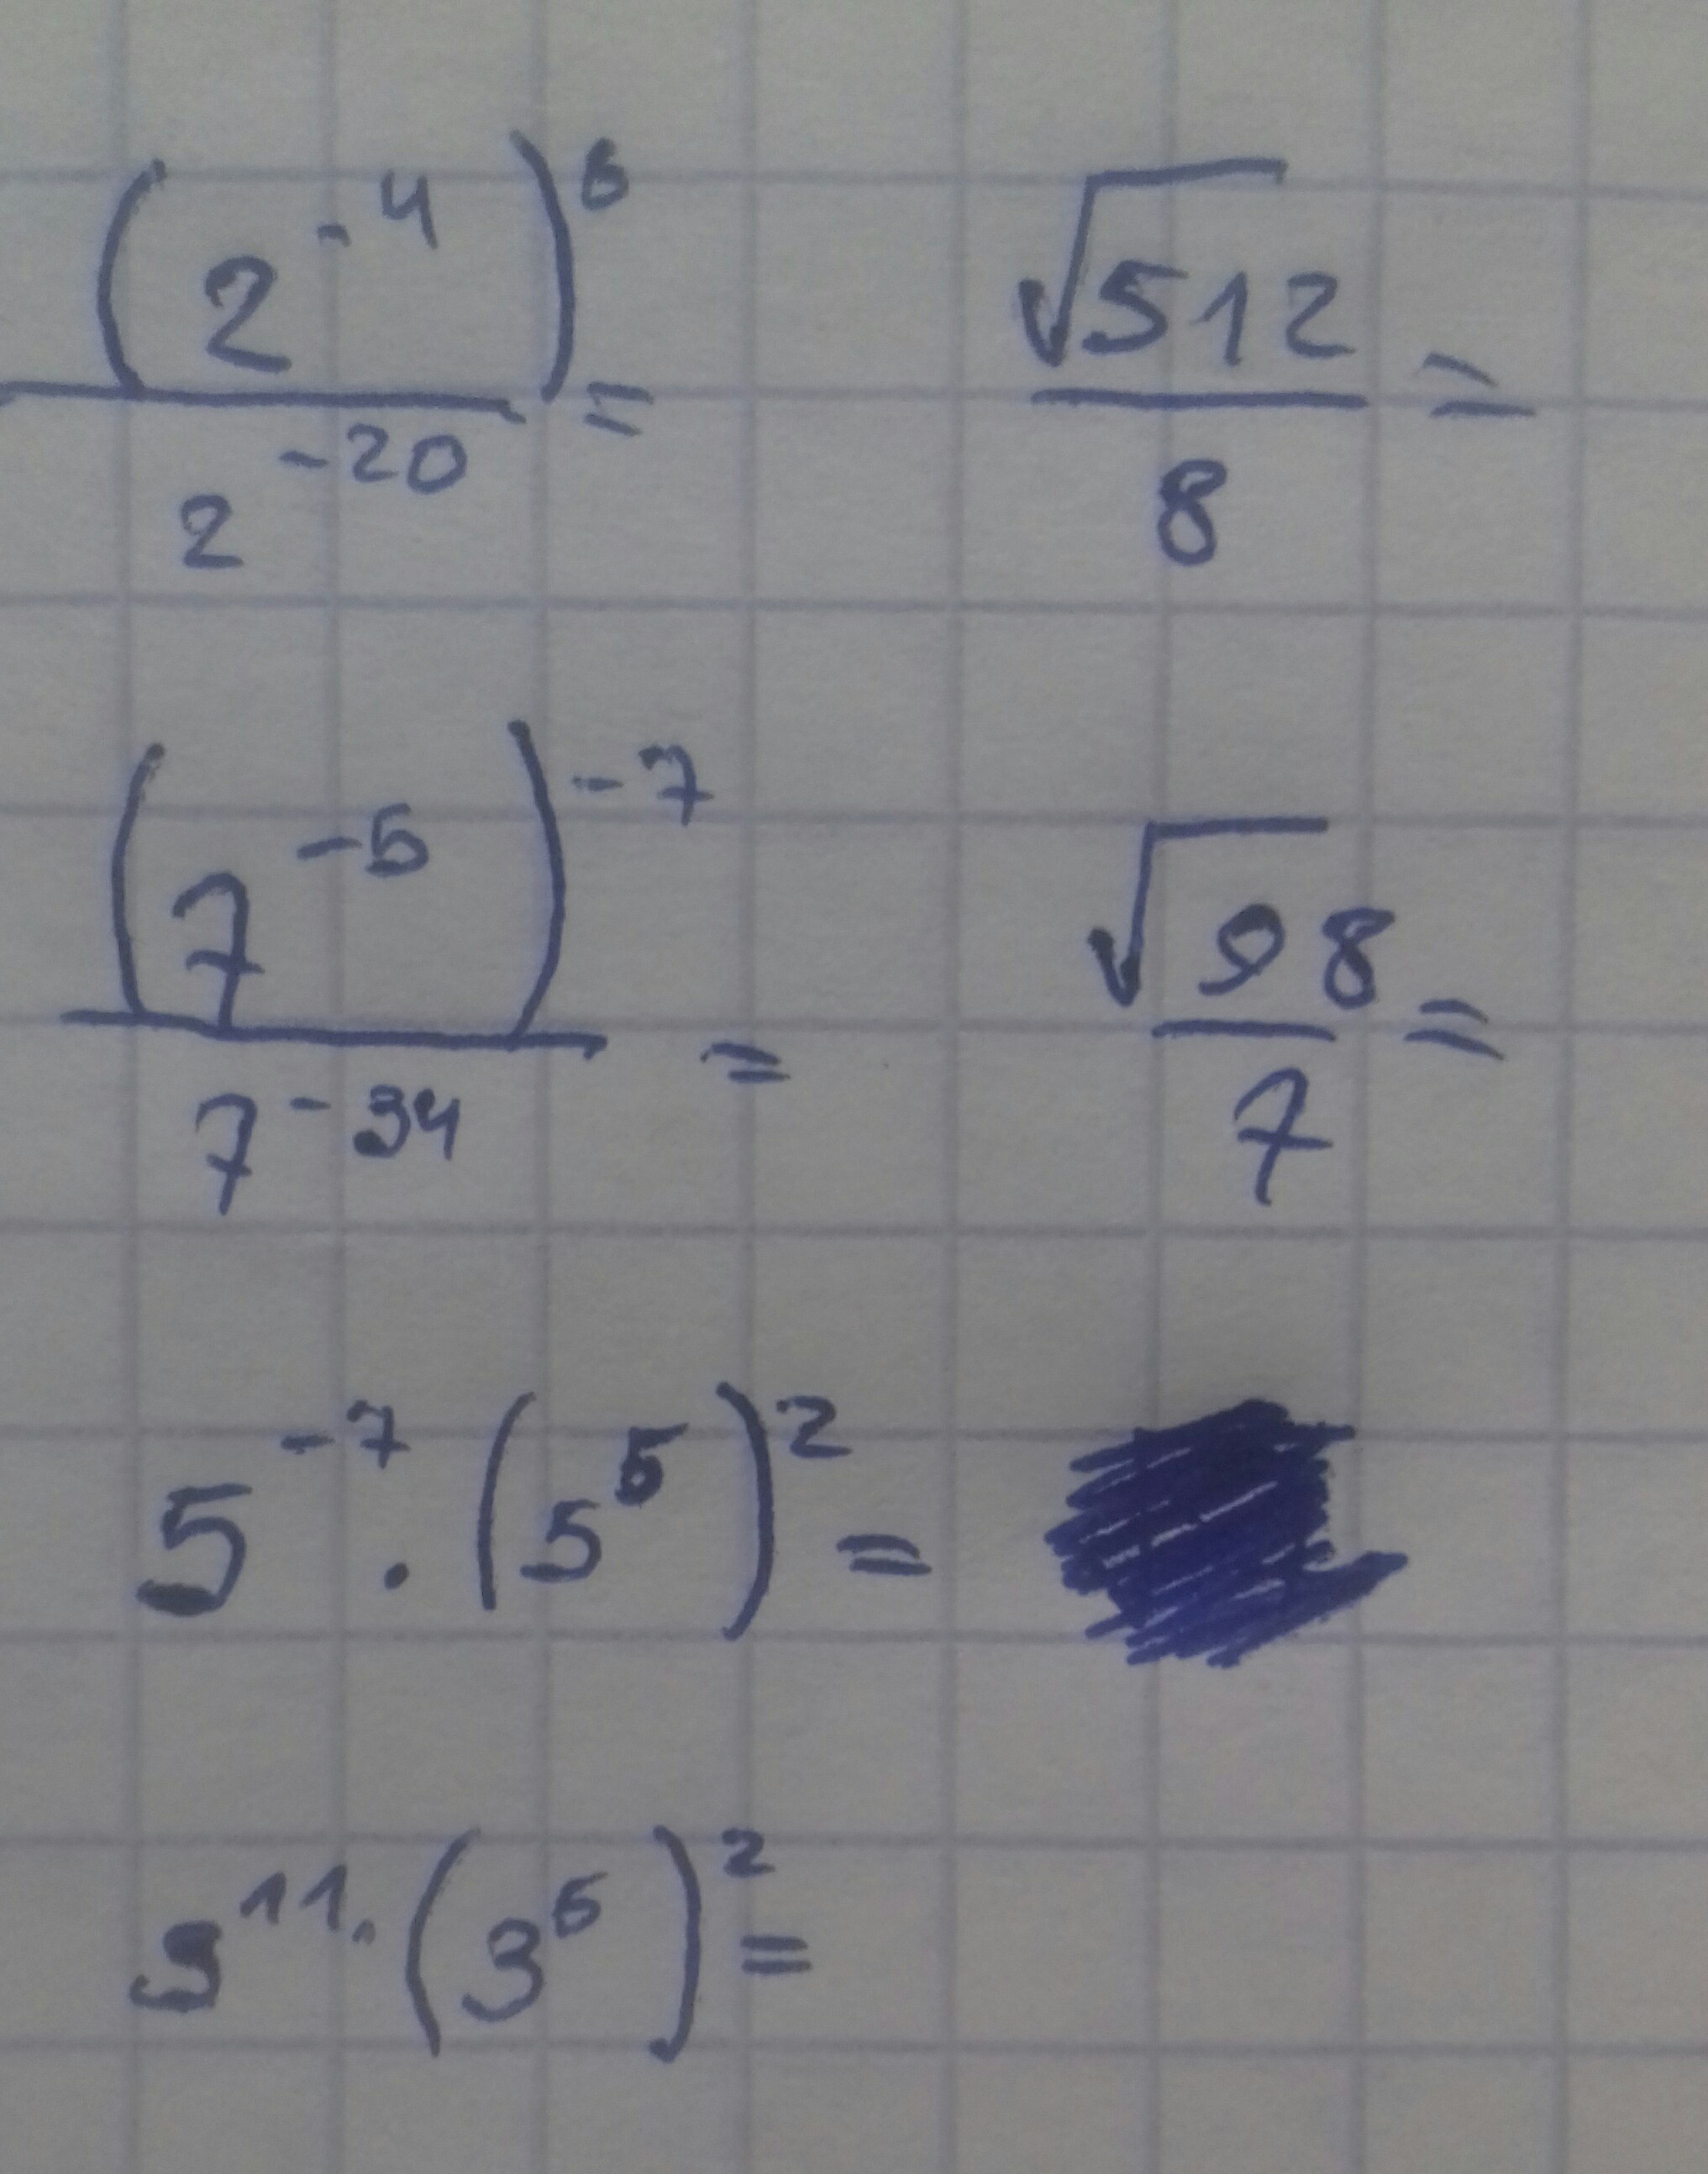 (2^-4)^6 / 2^-20 =
√512 / 8 =
(7^-5)^-7 / 7^-34 =
√98 / 7 =
5^-7 · (5^5)^2 =
9^11 · (3^6)^2 =